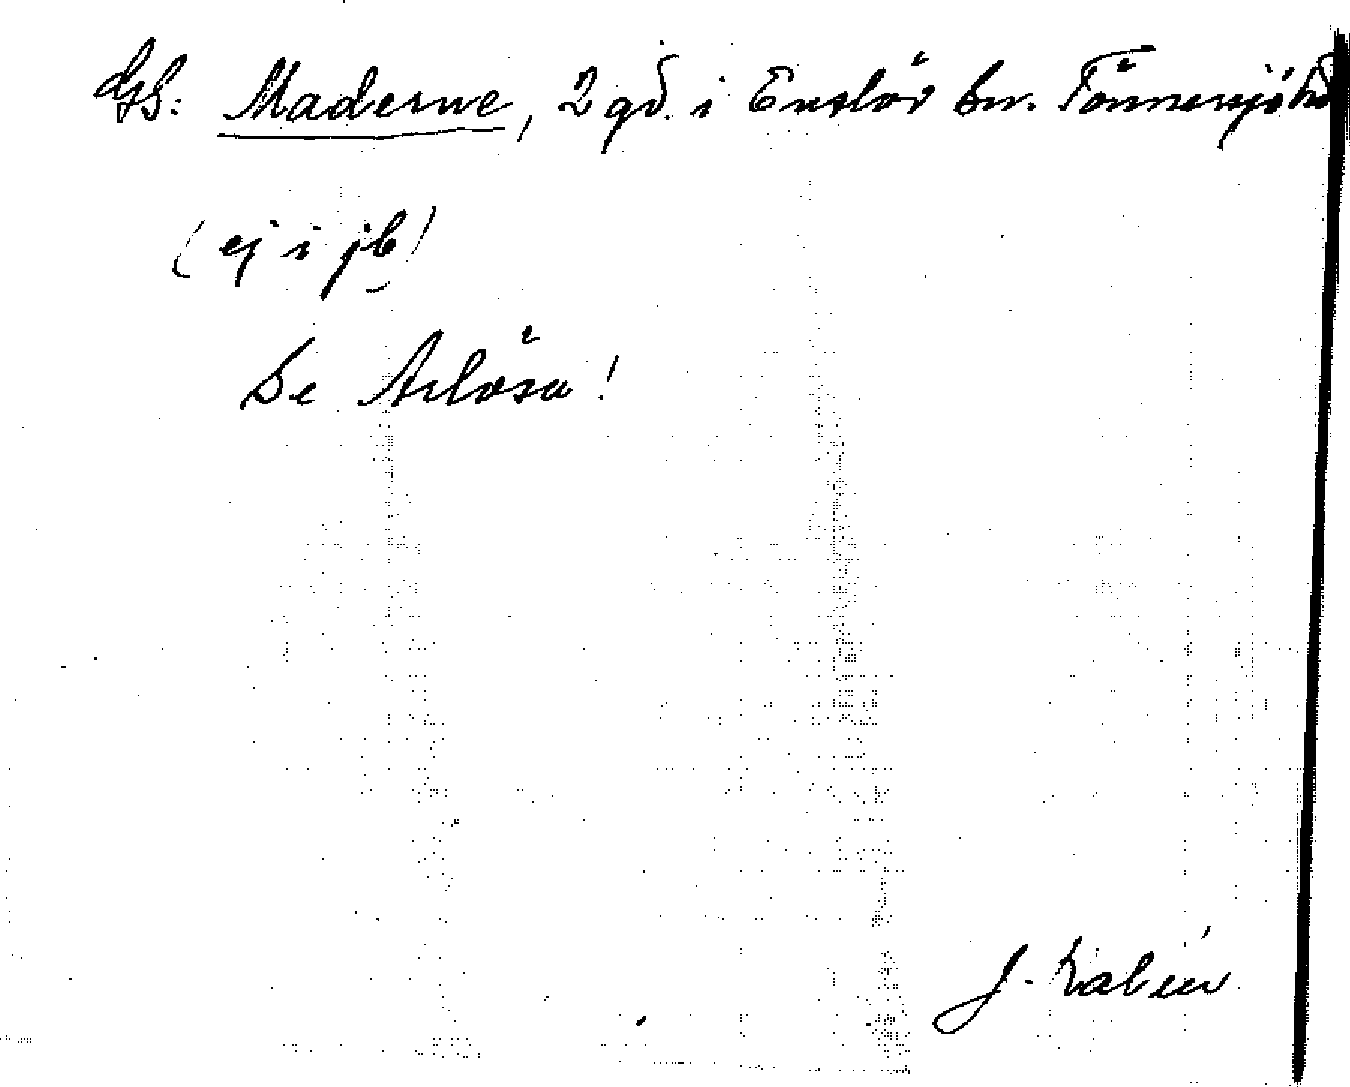 GS: Maderne, 2 gd. i Enslöv sn. Tönnersjö hd
(ej i jb)
Se Arlösa!
J. Kalén